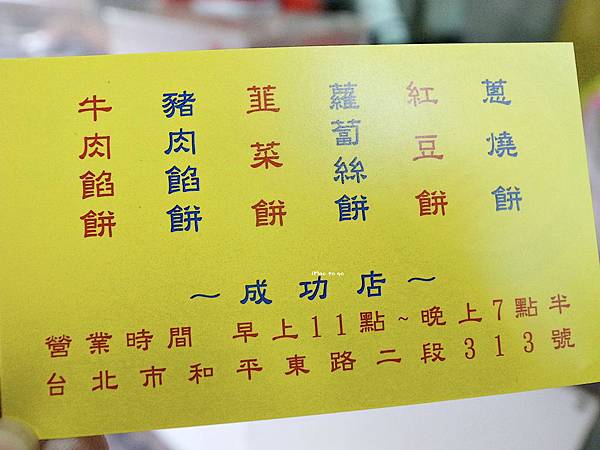 蔥燒餅
紅豆餅
蘿蔔絲餅
韮菜餅
豬肉餡餅
牛肉餡餅
～成功店～
營業時間 早上11點~晚上7點半
台北市和平東路二段313號